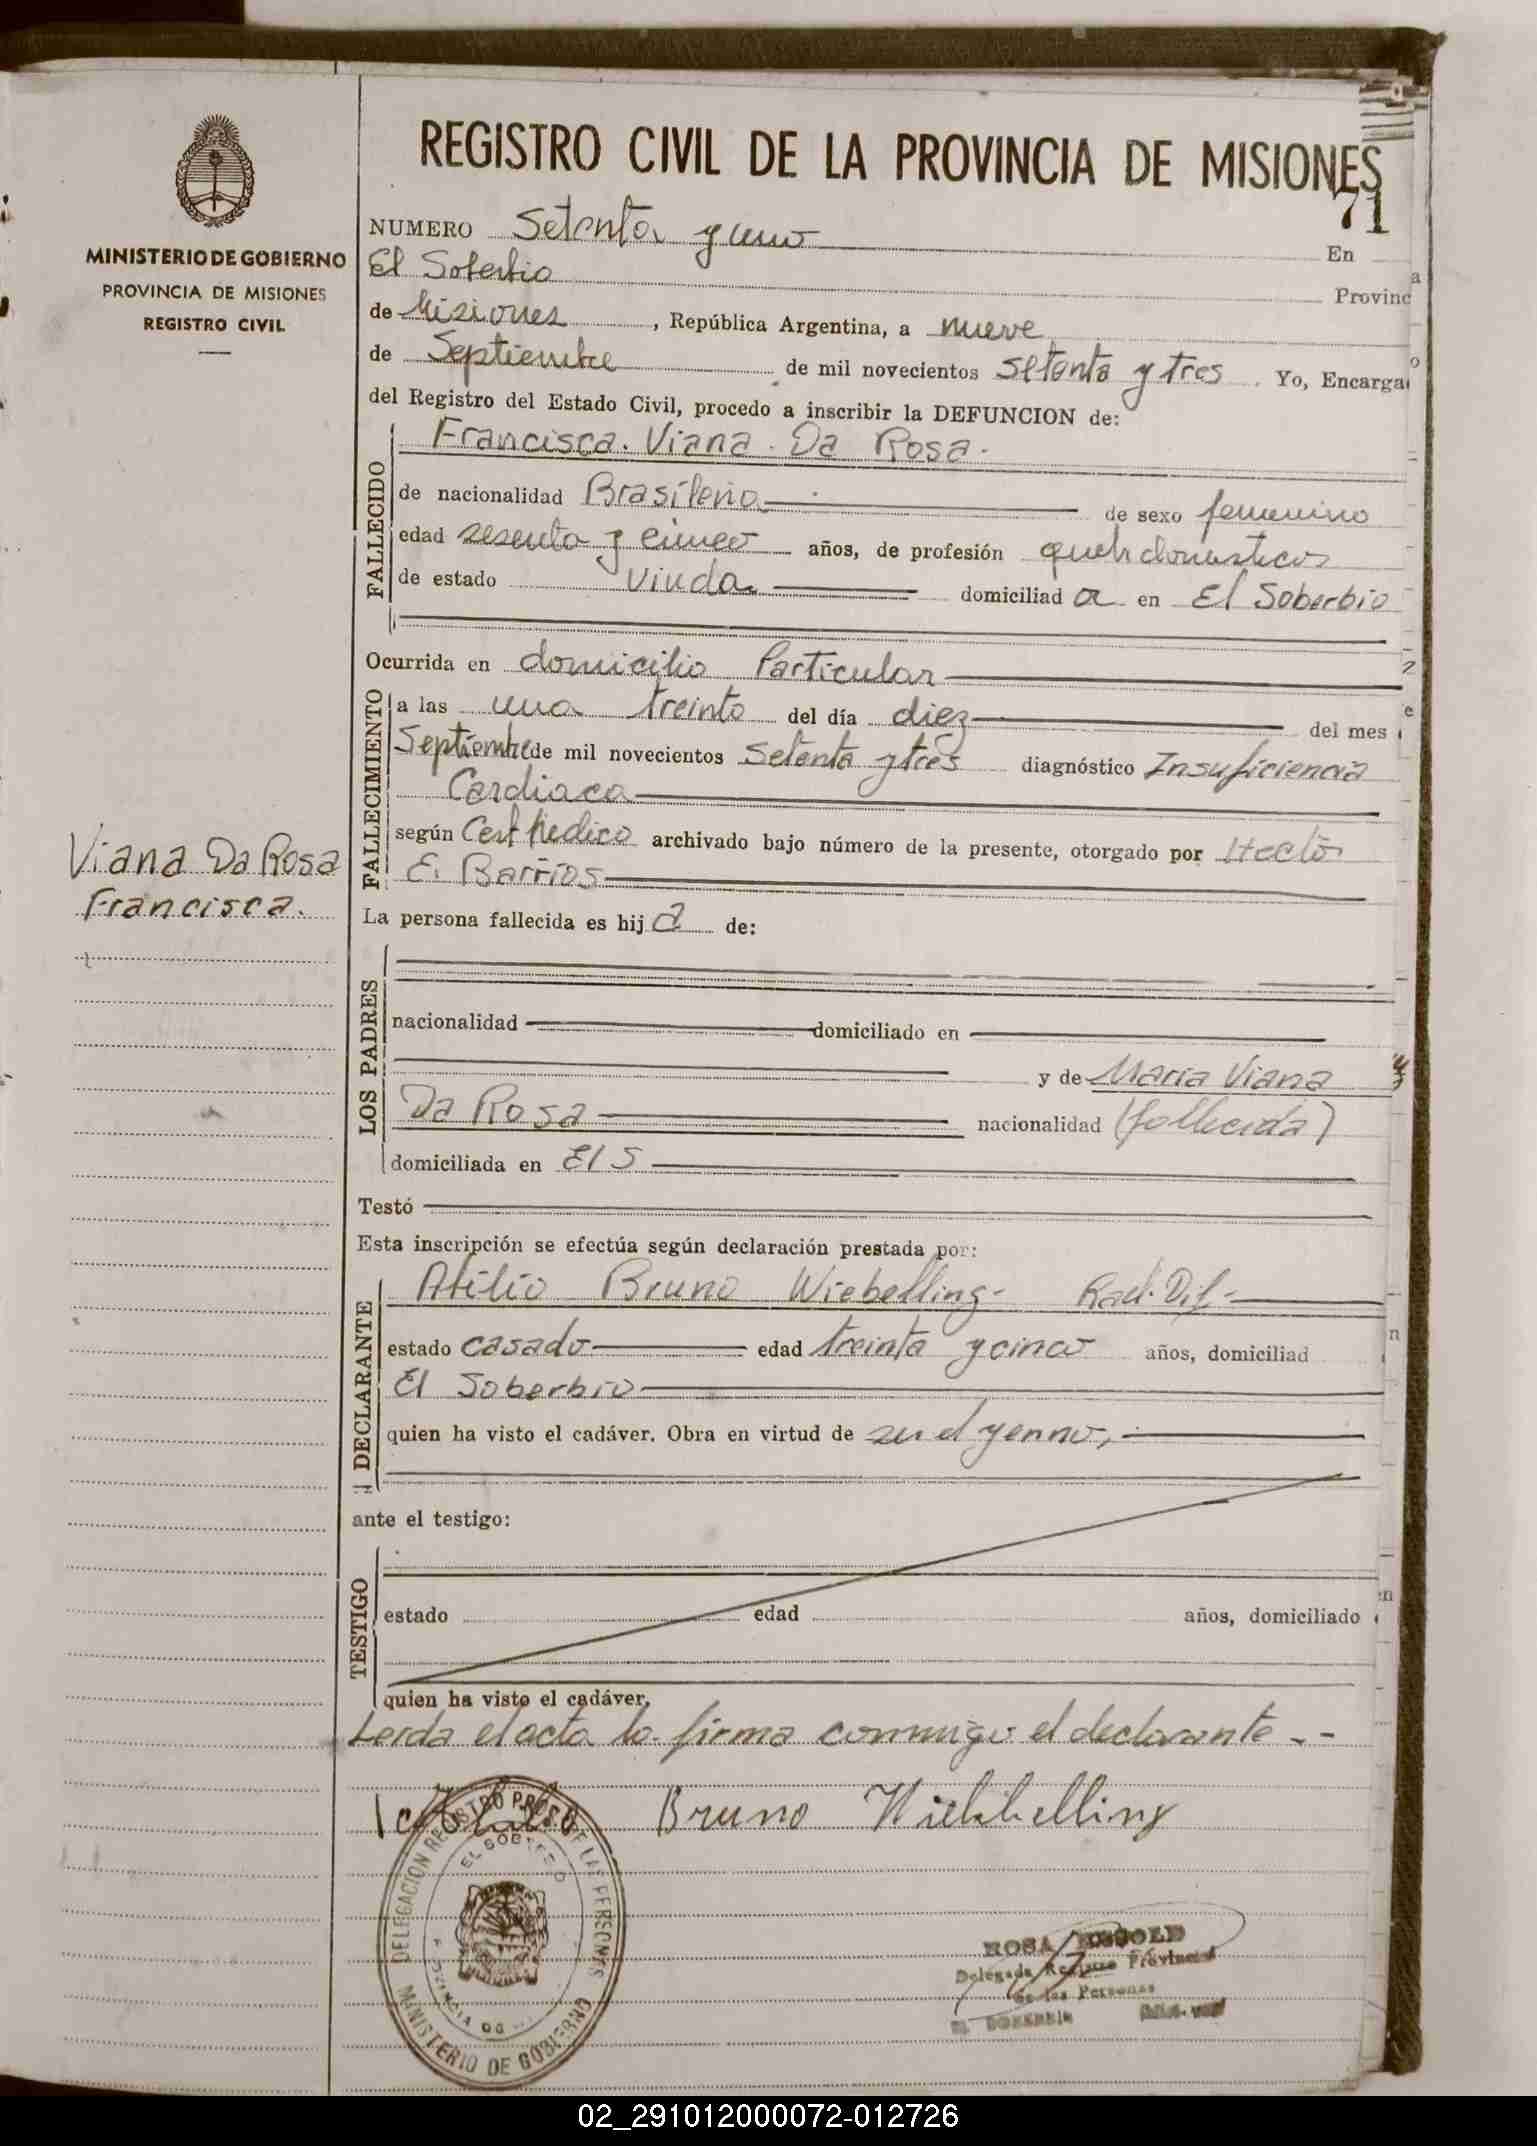 REGISTRO CIVIL DE LA PROVINCIA DE MISIONES
71
MINISTERIO DE GOBIERNO
PROVINCIA DE MISIONES
REGISTRO CIVIL
NUMERO Setenta y uno En
El Soberbio Provinc
de Misiones, República Argentina, a nueve
de Septiembre de mil novecientos setenta y tres. Yo, Encarga
del Registro del Estado Civil, procedo a inscribir la DEFUNCION de:
FALLECIDO
Francisca. Viana. Da Rosa.
de nacionalidad Brasileña de sexo femenino
edad sesenta y cinco años, de profesión queh domesticos
de estado viuda domiciliad a en El Soberbio
Ocurrida en domicilio Particular
FALLECIMIENTO
a las una treinta del día diez del mes
Septiembre de mil novecientos setenta y tres diagnóstico Insuficiencia
Cardiaca
según Cert Medico archivado bajo número de la presente, otorgado por Hector
E. Barrios
Viana Da Rosa
Francisca.
La persona fallecida es hij a de:
LOS PADRES
nacionalidad domiciliado en
y de Maria Viana
Da Rosa nacionalidad (fallecida)
domiciliada en El S
Testó
Esta inscripción se efectúa según declaración prestada por:
DECLARANTE
Atilio Bruno Wiebelling- Rad. Dif.-
estado casado edad treinta y cinco años, domiciliad
El Soberbio
quien ha visto el cadáver. Obra en virtud de ser el yerno,
ante el testigo:
TESTIGO
estado edad años, domiciliado
quien ha visto el cadáver.
Leida el acta la firma conmigo el declarante.-
Bruno Wiebbelling
DELEGACION REGISTRO PROV. DE LAS PERSONAS
EL SOBERBIO
MINISTERIO DE GOBIERNO
ROSA
Delegada Registro Provincial
de las Personas
EL SOBERBIO
02_291012000072-012726